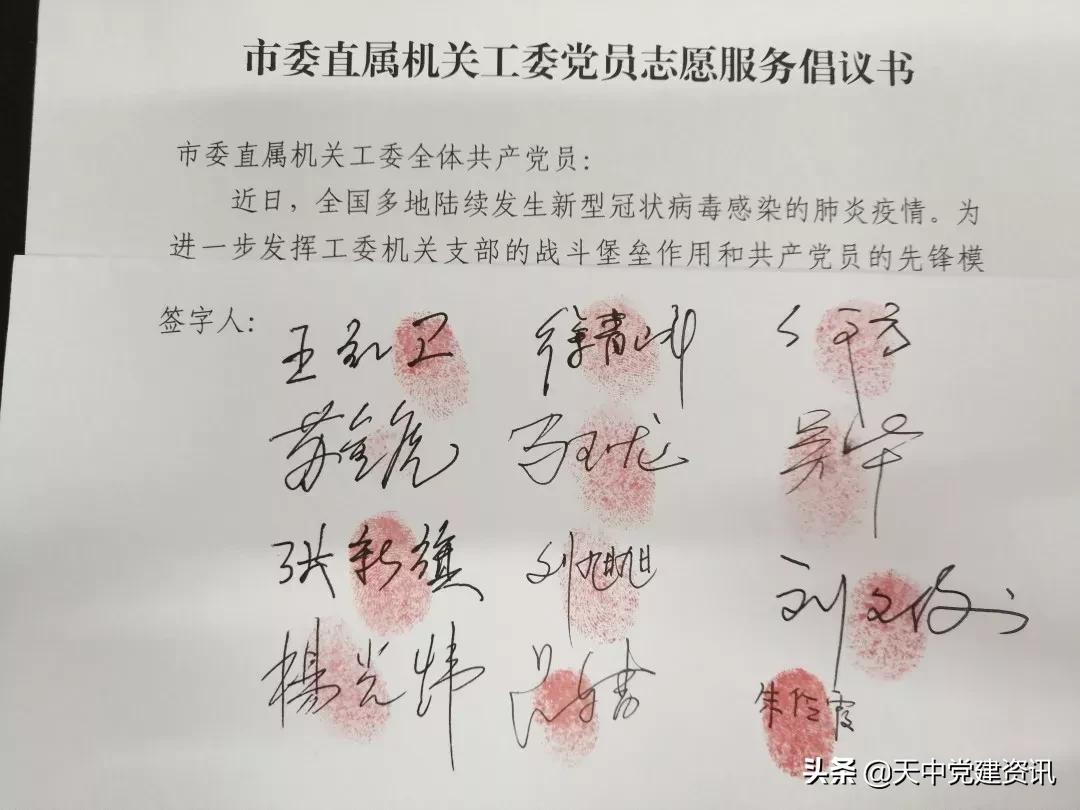 市委直属机关工委党员志愿服务倡议书
市委直属机关工委全体共产党员：
近日，全国多地陆续发生新型冠状病毒感染的肺炎疫情。为
进一步发挥工委机关支部的战斗堡垒作用和共产党员的先锋模
签字人：
王 卫 徐青
苏金虎 马玉龙 吴华
洪新旗 刘旭旭 刘文俊
楊光炜 吕 朱伶霞
头条 @天中党建资讯